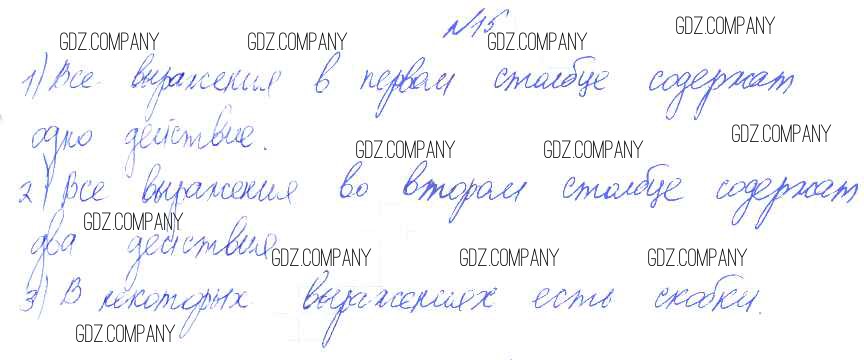 №15
GDZ.COMPANY GDZ.COMPANY GDZ.COMPANY GDZ.COMPANY
1) Все выражения в первом столбце содержат
одно действие.
GDZ.COMPANY GDZ.COMPANY GDZ.COMPANY
2) Все выражения во втором столбце содержат
GDZ.COMPANY
два действия
GDZ.COMPANY GDZ.COMPANY GDZ.COMPANY
3) В некоторых выражениях есть скобки.
GDZ.COMPANY